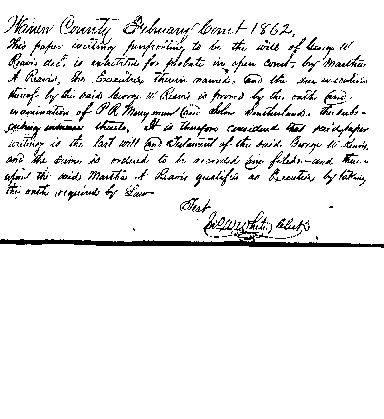 Warren County February Court 1862,
This paper writing purporting to be the will of George W
Reavis dec'd. is exhibited for probate in open court, by Martha
A Reavis, the Executrix therein named, and the due execution
thereof by the said George W Reavis is proved by the oath and
examination of P R Merryman and John Southerland, the subs-
cribing witnesses thereto, It is therefore considered that said paper
writing is the last will and Testament of the said George W Reavis,
and the same is ordered to be recorded and filed. and there-
upon the said Martha A Reavis qualifies as Executrix by taking
the oath required by Law
Test
White Clerk